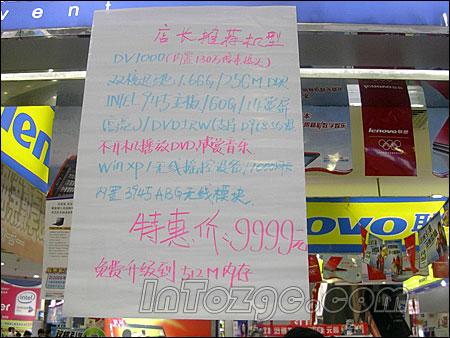 vent
店长推荐机型
DV1000(内置130万像素摄头)
双核迅驰 1.66G/256M DDR
INTEL 945主板/60G/14寸宽屏
DVD±RW(支持
不开机播放DVD,听音乐
Win xp/无线摇控设备/1000M网卡
内置3945ABG无线模块
特惠价:9999元
免费升级到512M内存
lenovo 联想
novo 联
len
intel
InTozgc.com